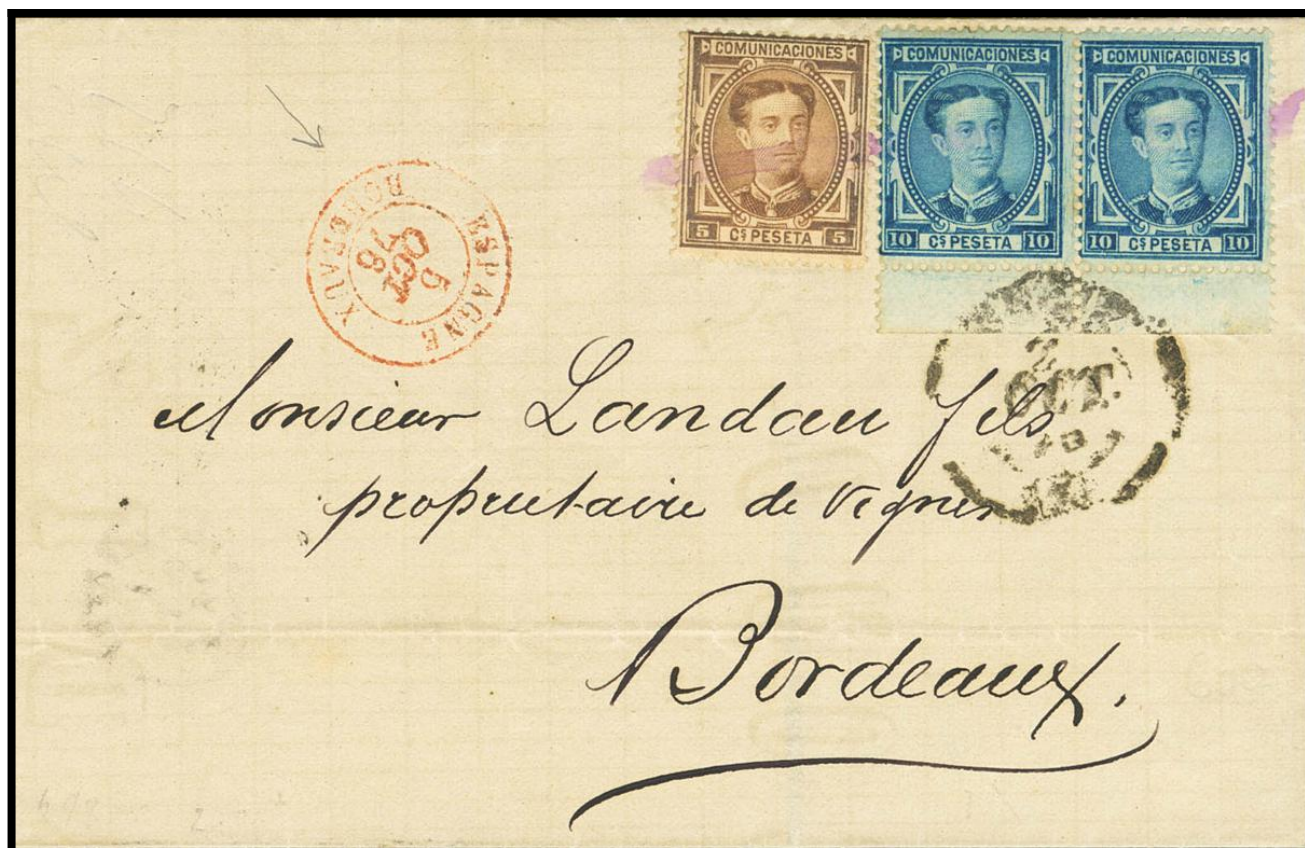 COMUNICACIONES
5 CS PESETA 5
COMUNICACIONES
10 CS PESETA 10
COMUNICACIONES
10 CS PESETA 10
ESPAGNE
5
OCT
76
BORDEAUX
2
OCT.
Monsieur Landau fils
proprietaire de vignes
Bordeaux.